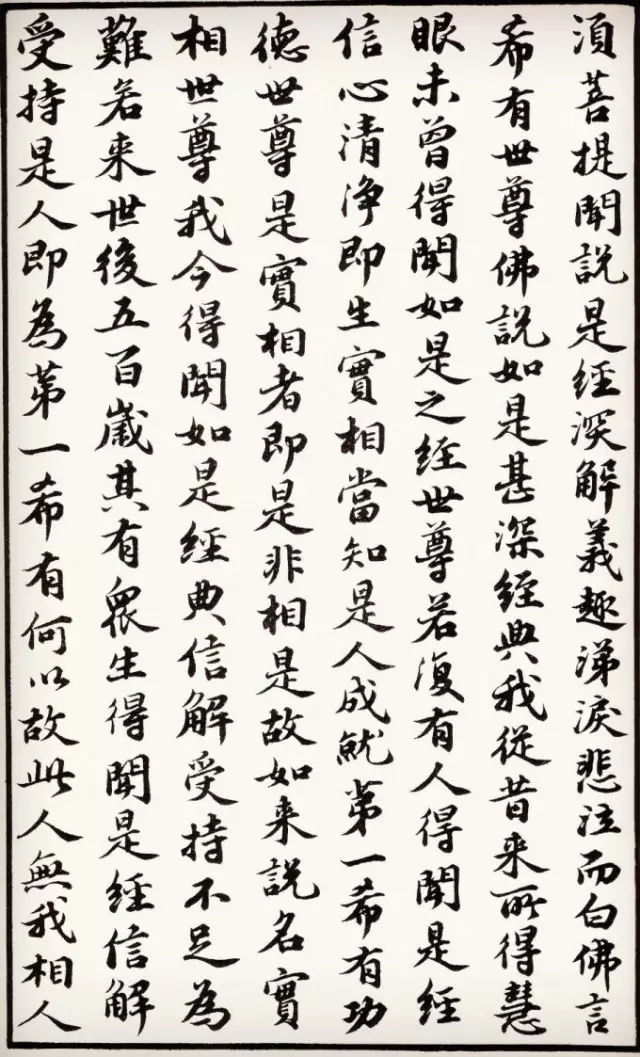 須菩提聞說是經深解義趣涕淚悲泣而白佛言
希有世尊佛說如是甚深經典我從昔來所得慧
眼未曾得聞如是之經世尊若復有人得聞是經
信心清淨即生實相當知是人成就第一希有功
德世尊是實相者即是非相是故如來說名實
相世尊我今得聞如是經典信解受持不足為
難若来世後五百歲其有眾生得聞是經信解
受持是人即為第一希有何以故此人無我相人